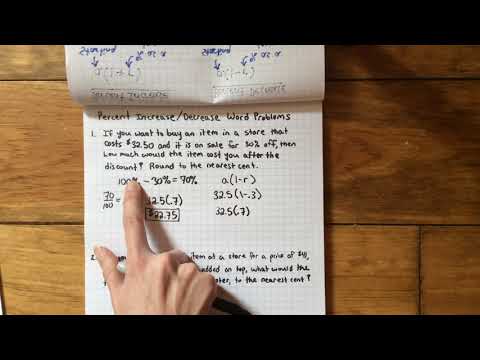 Starting
% as a
Starting
% as a
a(1-r)
a(1-r)
Percent Decrease
Percent Decrease
Percent Increase/Decrease Word Problems
1. If you want to buy an item in a store that
costs $32.50 and it is on sale for 30% off, then
how much would the item cost you after the
discount? Round to the nearest cent.
100% - 30% = 70% a(1-r)
70/100 = 32.5(.7) 32.5(1-.3)
$22.75 32.5(.7)
2. item at a store for a price of
added on top, what would the
to the nearest cent?